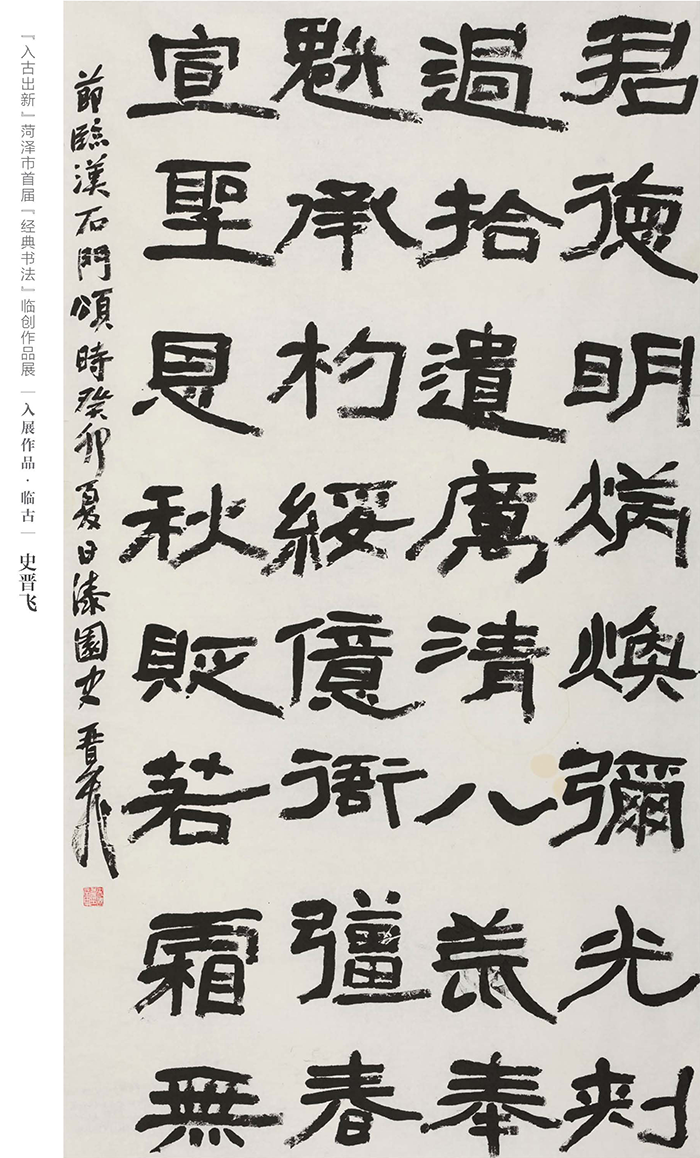 君德明炳煥彌光刺
過拾遺厲清八荒奉
魁承杓綏億衙彊春
宣聖恩秋貶若霜無
節臨漢石門頌時癸卯夏日漆園史晉飛
『入古出新』菏泽市首届『经典书法』临创作品展｜入展作品·临古｜史晋飞